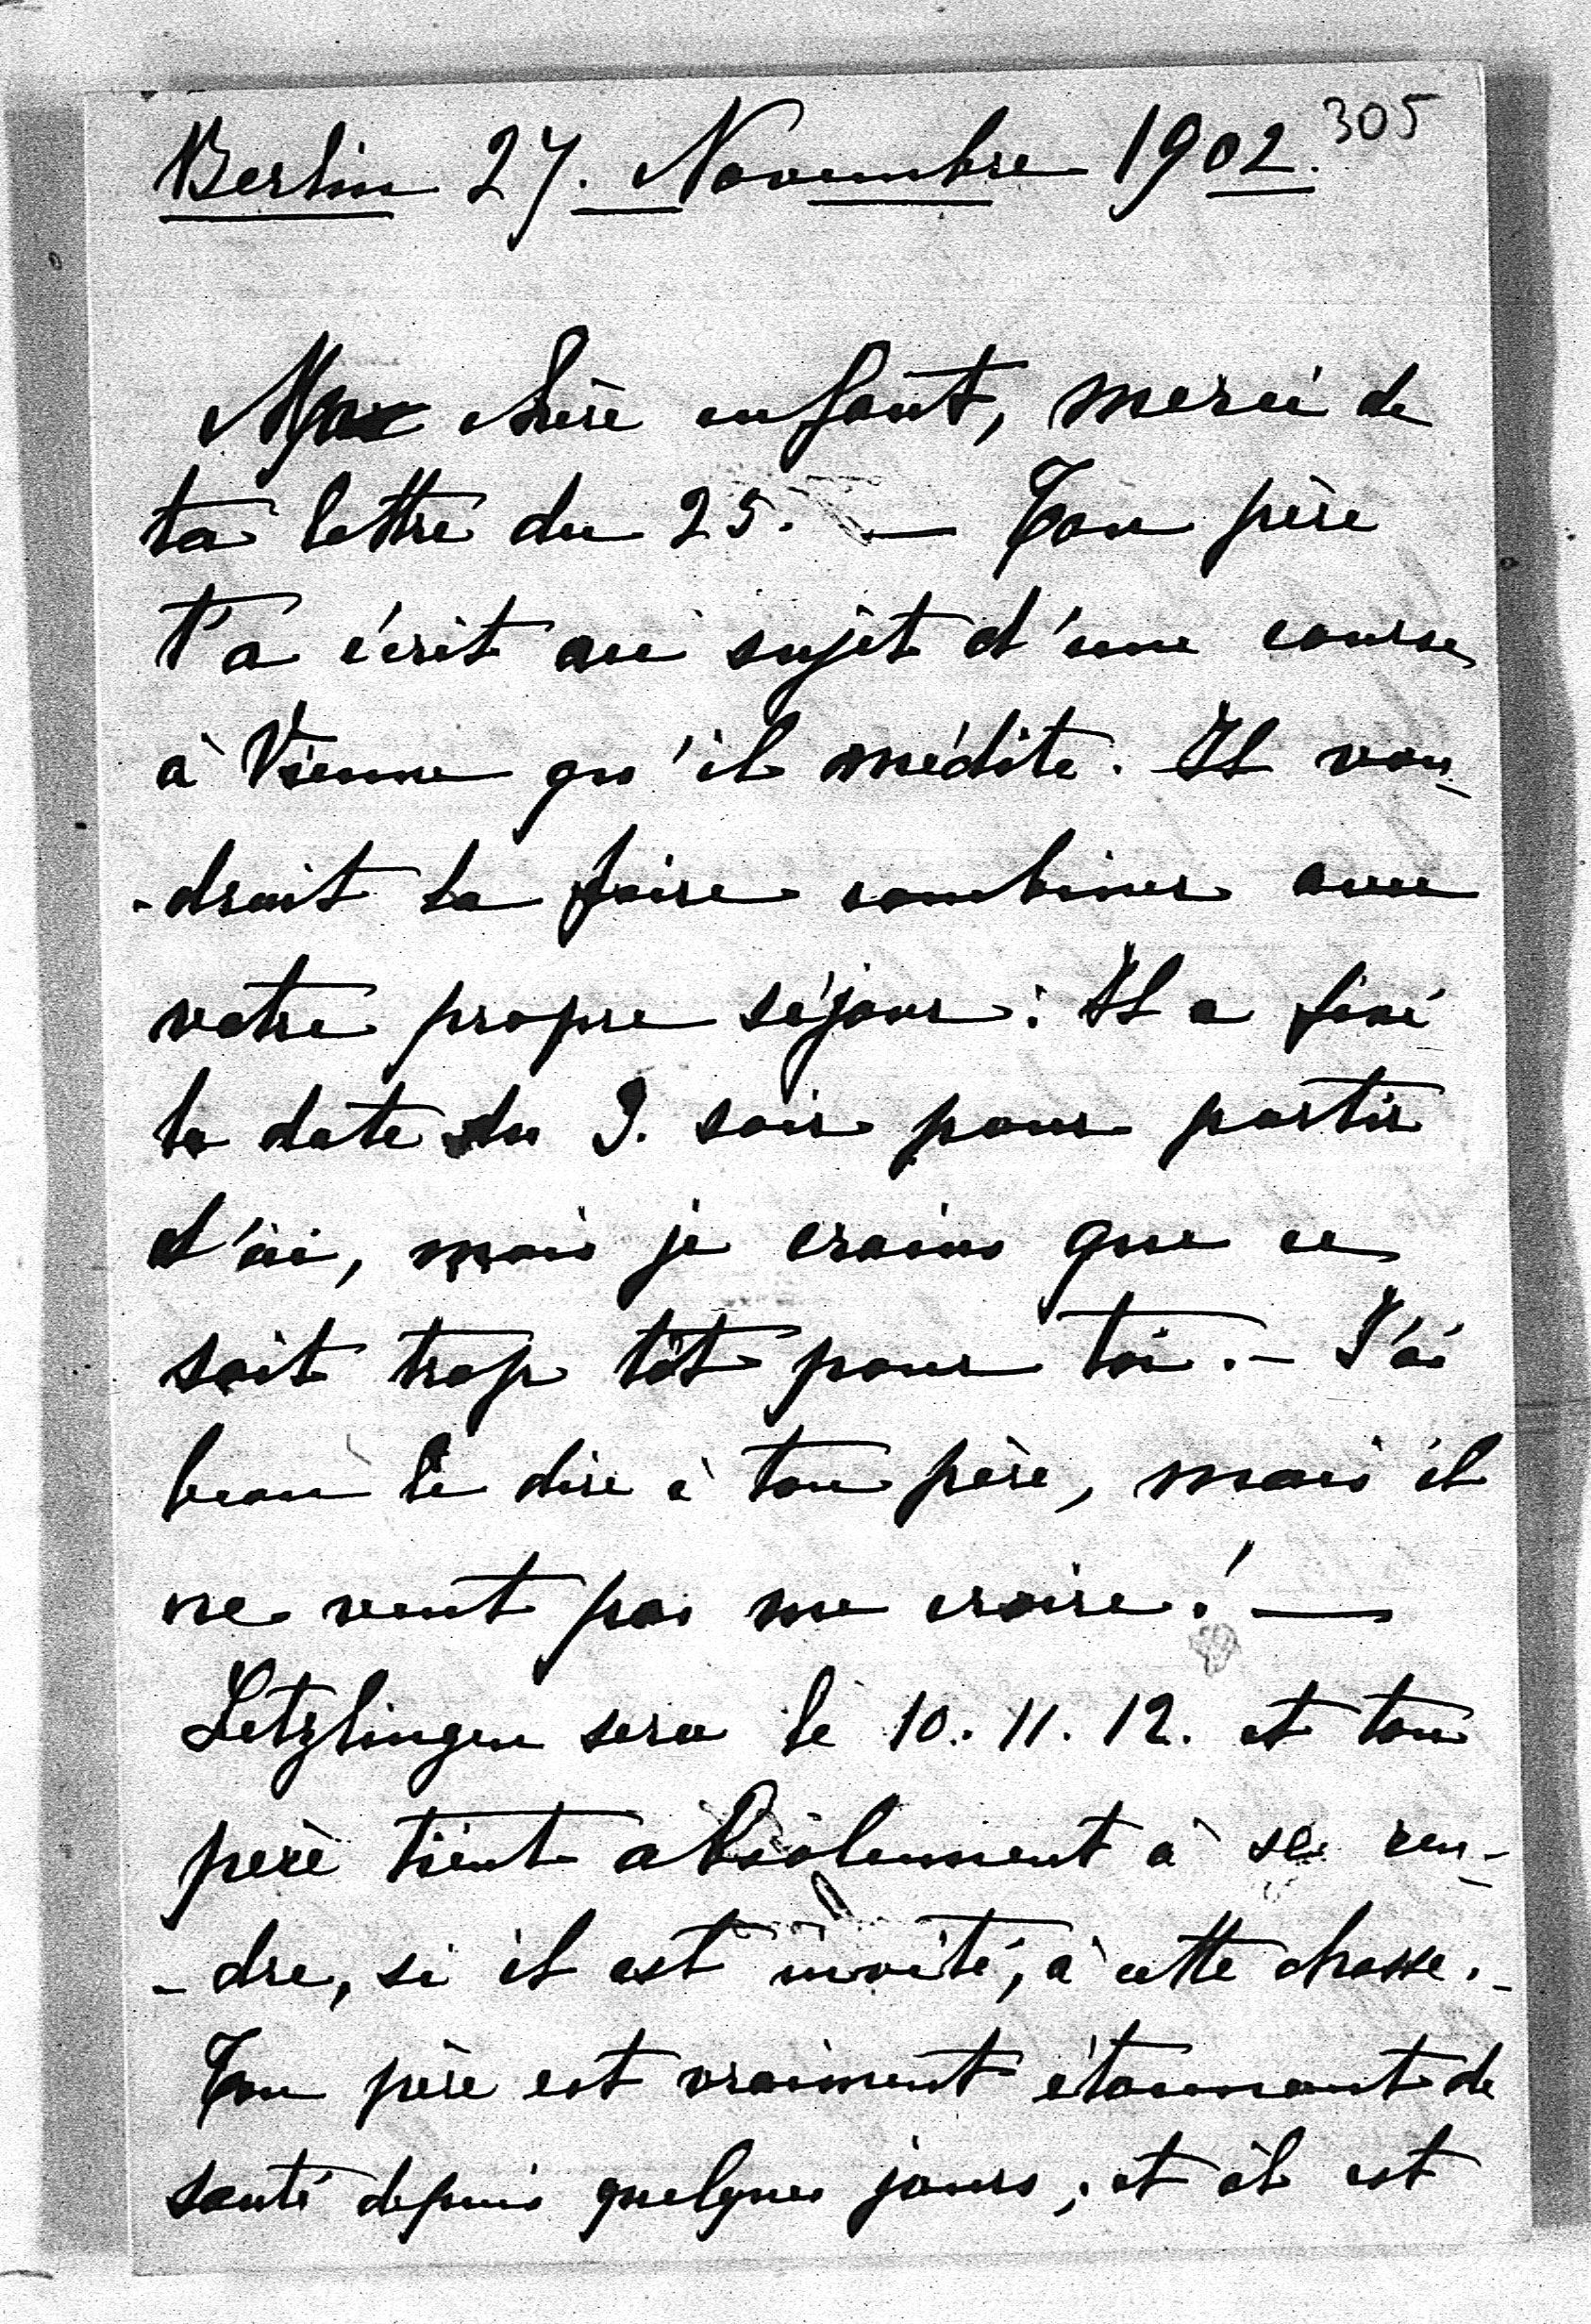 305
Berlin 27. Novembre 1902.
Ma chère enfant, merci de
ta lettre du 25. — Ton père
t'a écrit au sujet d'une course
à Vienne qu'il médite. Il vou-
-drait la faire combiner avec
votre propre séjour. Il a fixé
la date du 9. soir pour partir
d'ici, mais je crains que ce
soit trop tôt pour toi. – J'ai
beau le dire à ton père, mais il
ne veut pas me croire! —
Letzlingen sera le 10. 11. 12. et ton
père tient absolument à se ren-
-dre, si il est invité, à cette chasse. -
Ton père est vraiment étonnant de
santé depuis quelques jours, et il est